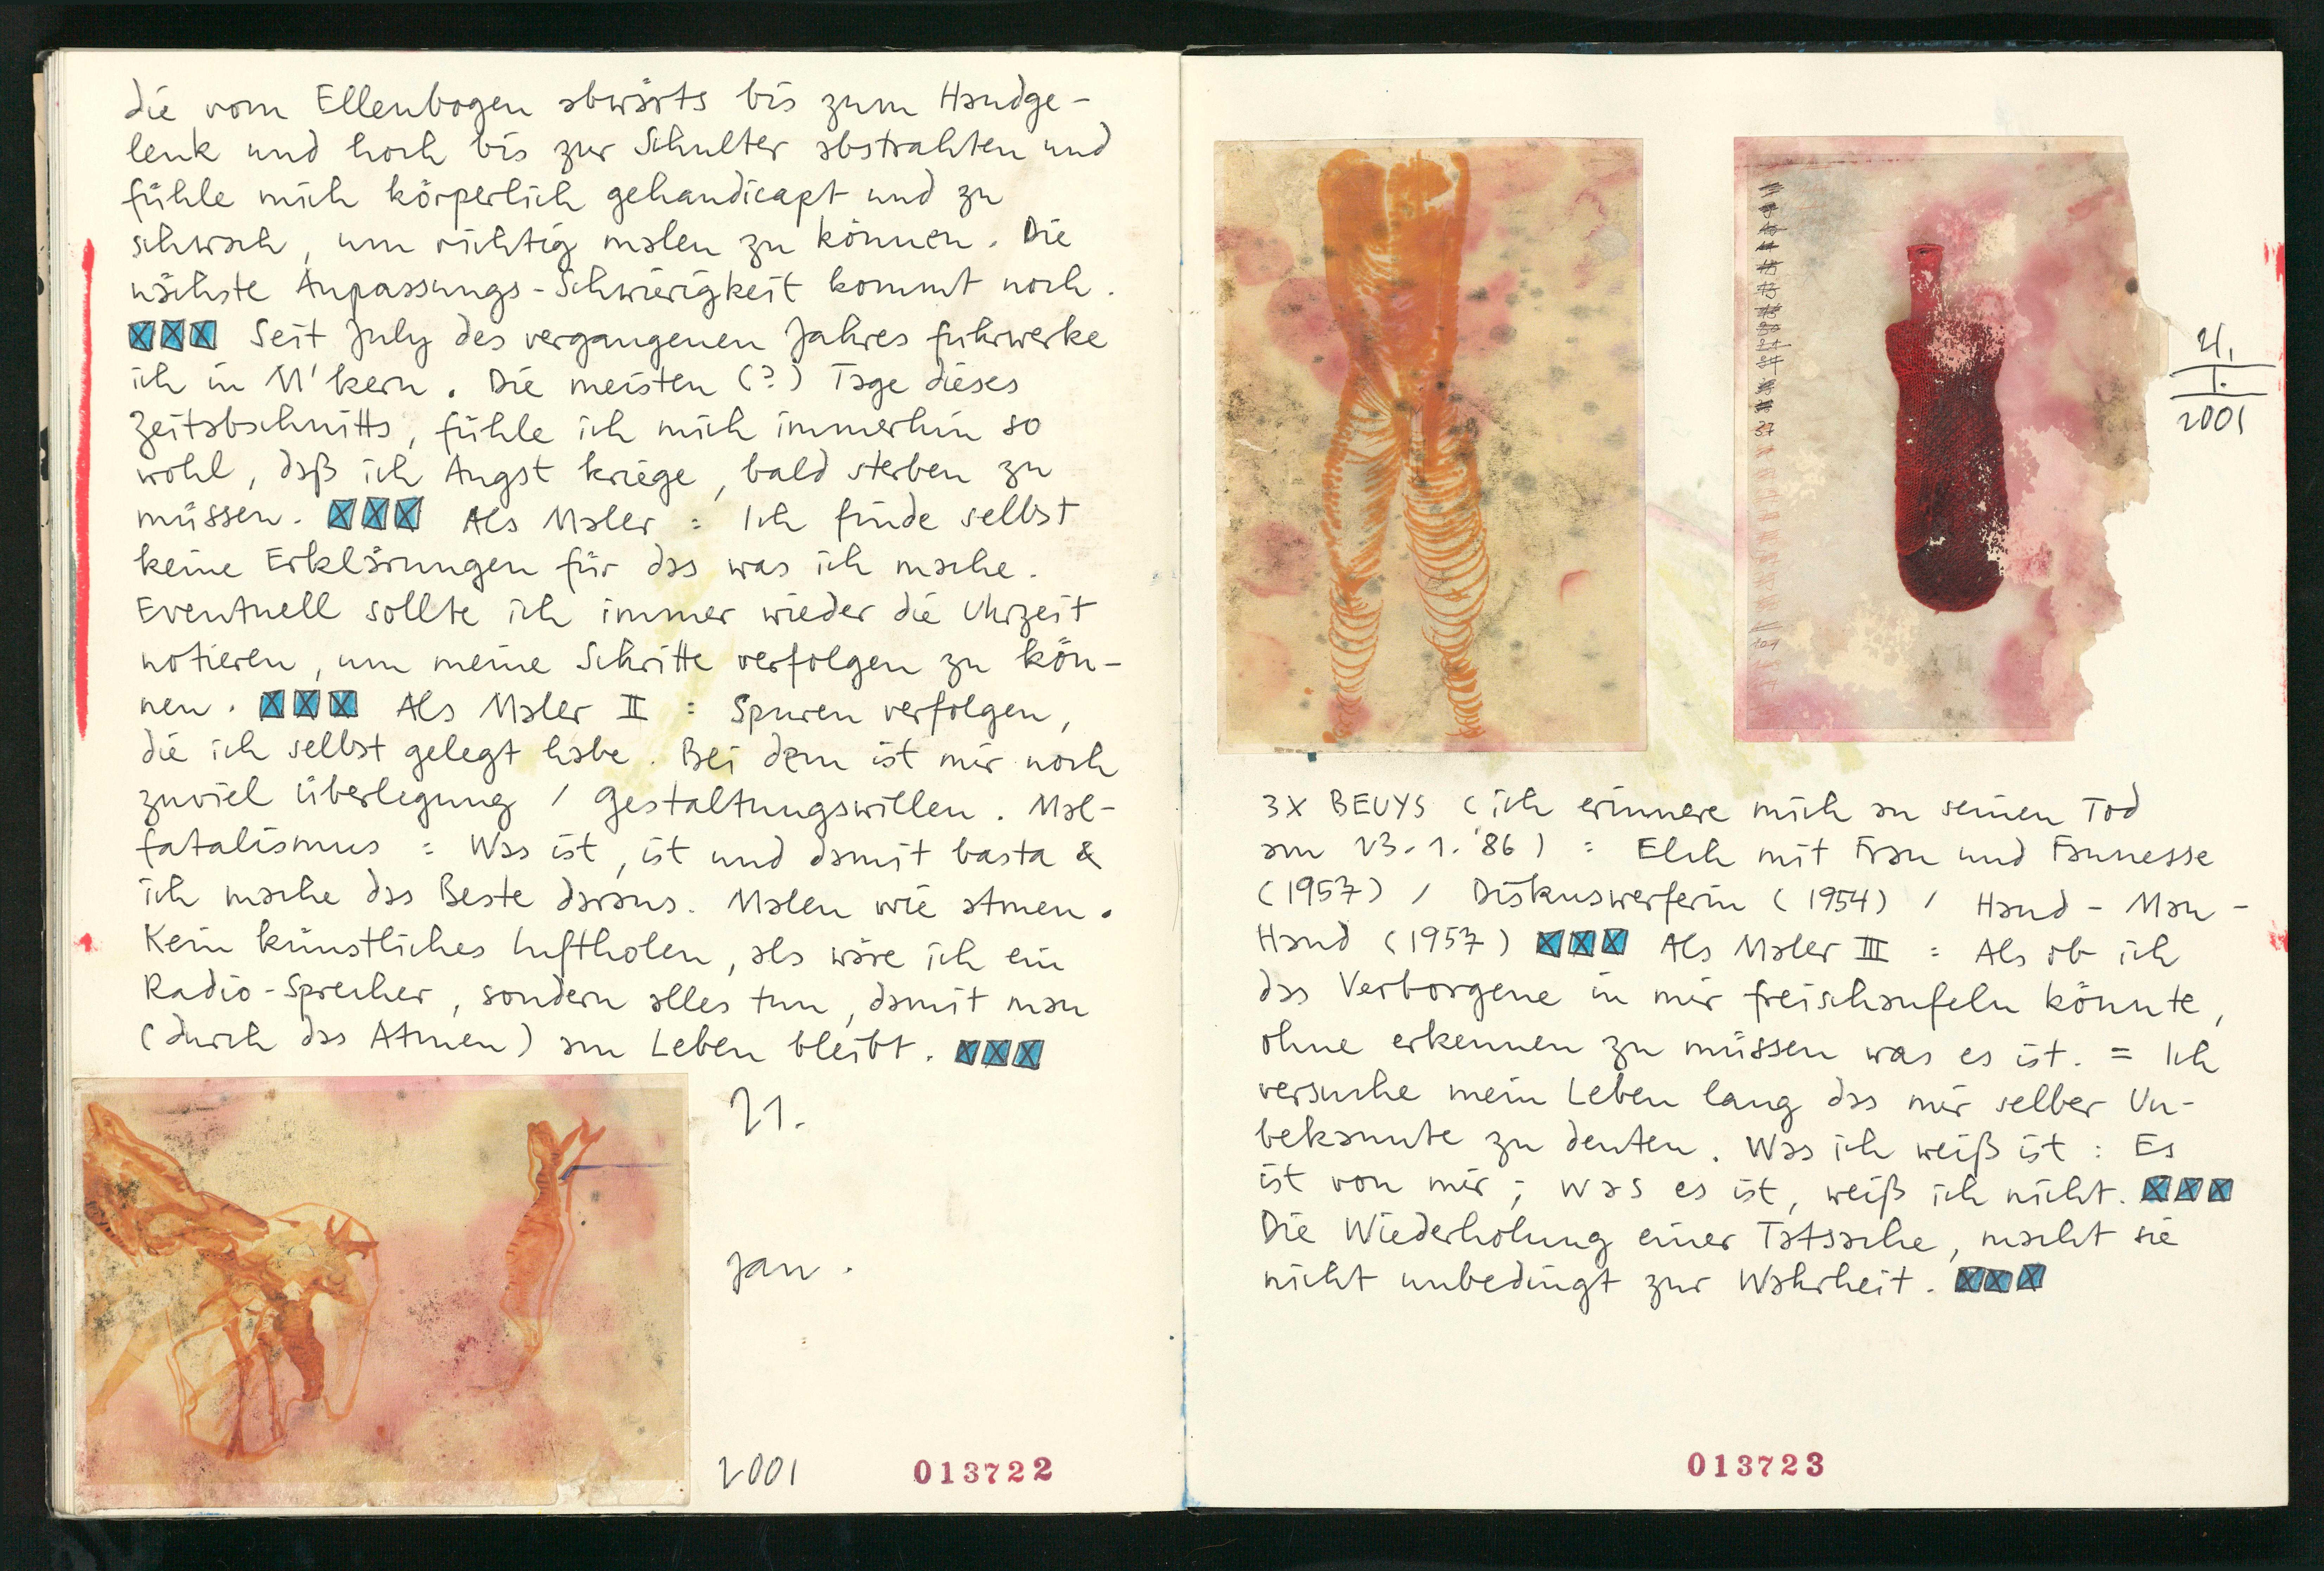 die vom Ellenbogen abwärts bis zum Handge-
lenk und hoch bis zur Schulter abstrahlten und
fühle mich körperlich gehandicapt und zu
schwach, um richtig malen zu können. Die
nächste Anpassungs-Schwierigkeit kommt noch.
Seit July des vergangenen Jahres fuhrwerke
ich in N'kern. Die meisten (?) Tage dieses
Zeitabschnitts, fühle ich mich immerhin so
wohl, daß ich Angst kriege, bald sterben zu
müssen. Als Maler : Ich finde selbst
keine Erklärungen für das was ich mache.
Eventuell sollte ich immer wieder die Uhrzeit
notieren, um meine Schritte verfolgen zu kön-
nen. Als Maler II : Spuren verfolgen,
die ich selbst gelegt habe. Bei dem ist mir noch
zuviel Überlegung / Gestaltungswillen. Mal-
fatalismus : Was ist, ist und damit basta &
ich mache das Beste daraus. Malen wie atmen.
Kein künstliches Luftholen, als wäre ich ein
Radio-Sprecher, sondern alles tun, damit man
(durch das Atmen) am Leben bleibt.
21.
Jan.
2001
013722
21.
1.
2001
37
3X BEUYS (ich erinnere mich an seinen Tod
am 23.1.'86) : Elch mit Frau und Faunesse
(1957) / Diskuswerferin (1954) / Hand - Man -
Hand (1957) Als Maler III : Als ob ich
das Verborgene in mir freischaufeln könnte,
ohne erkennen zu müssen was es ist. = Ich
versuche mein Leben lang das mir selber Un-
bekannte zu deuten. Was ich weiß ist : Es
ist von mir ; was es ist, weiß ich nicht.
Die Wiederholung einer Tatsache, macht sie
nicht unbedingt zur Wahrheit.
013723